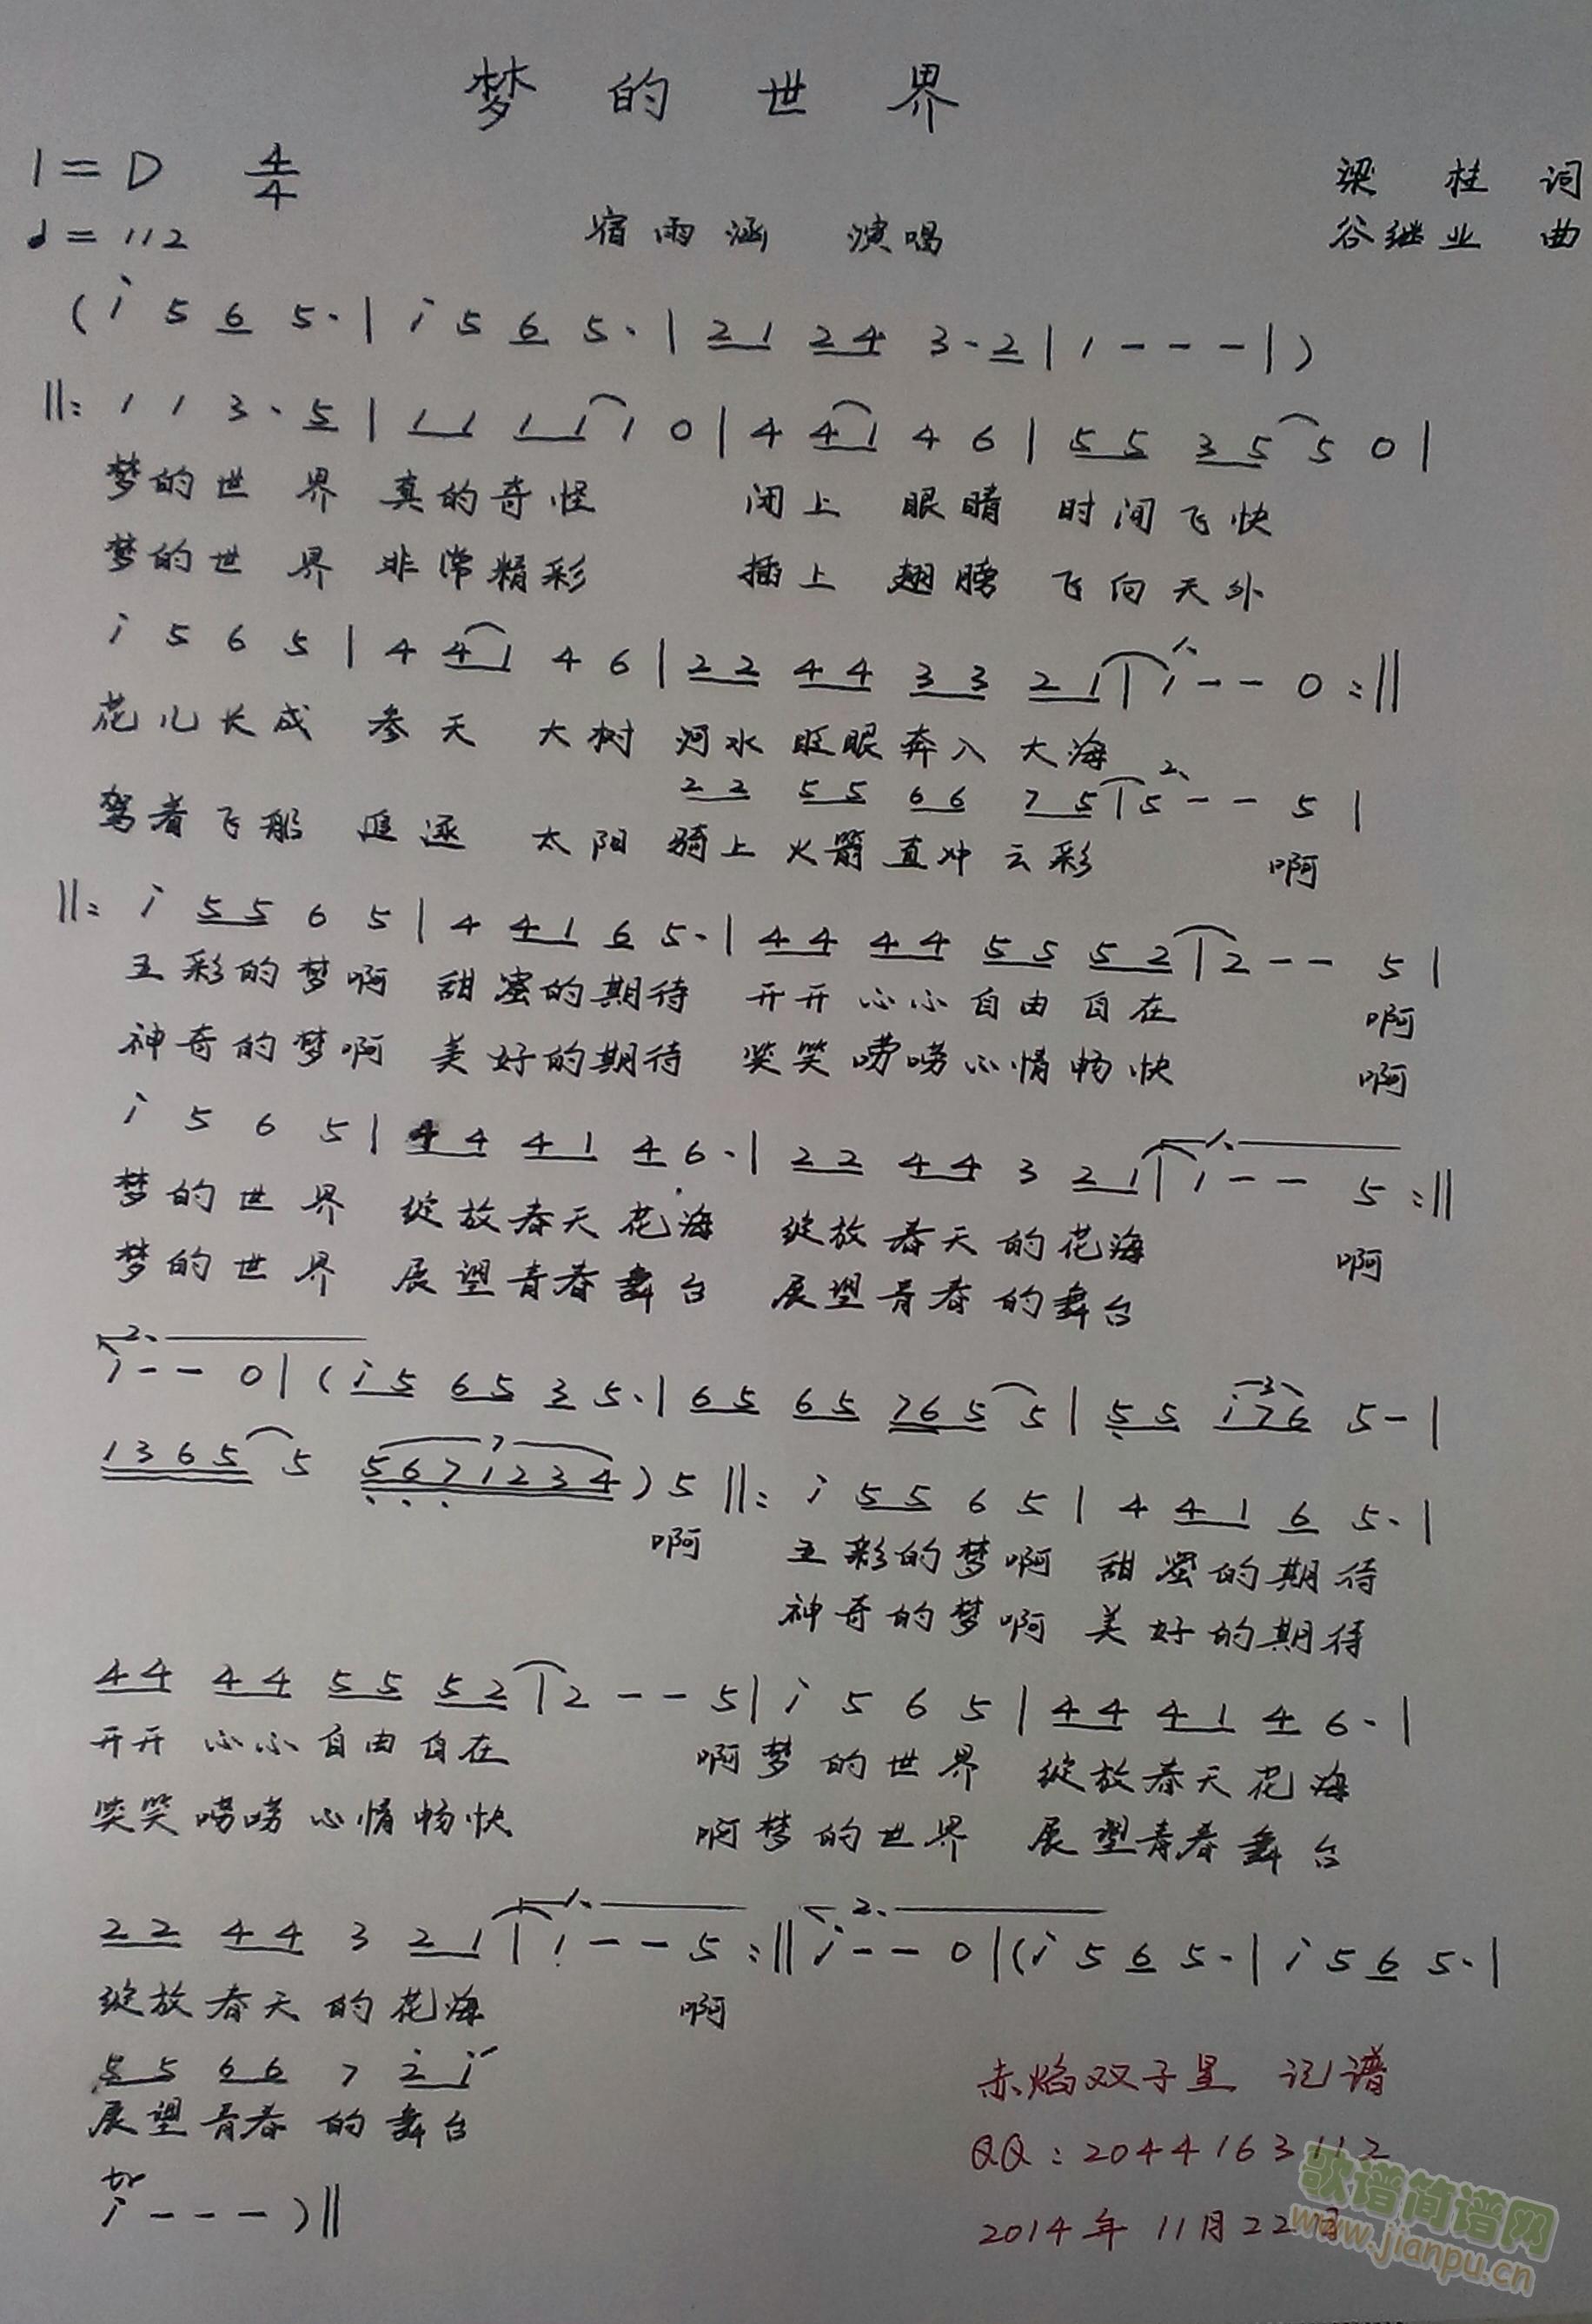 梦的世界
1=D 4/4
梁桂 词
♩=112 宿雨涵 演唱 谷继业 曲
(i 5 6 5·|i 5 6 5·|2 1 2 4 3·2|1 - - -|)
‖: 1 1 3·5|1 1 1 1 1 0|4 4 1 4 6|5 5 3 5 5 0|
梦的世界 真的奇怪 闭上 眼睛 时间飞快
梦的世界 非常精彩 插上 翅膀 飞向天外
i 5 6 5|4 4 1 4 6|2 2 4 4 3 3 2 1|1. 1 - - 0:‖
花儿长成 参天 大树 河水 眨眼 奔入 大海
2 2 5 5 6 6 7 5|2. 5 - - 5|
驾着飞船 追逐 太阳 骑上火箭直冲云彩 啊
‖: i 5 5 6 5|4 4 1 6 5·|4 4 4 4 5 5 5 2|2 - - 5|
五彩的梦啊 甜蜜的期待 开开心心自由自在 啊
神奇的梦啊 美好的期待 笑笑唠唠心情畅快 啊
i 5 6 5|4 4 4 1 4 6·|2 2 4 4 3 2 1|1. 1 - - 5:‖
梦的世界 绽放春天花海 绽放春天的花海 啊
梦的世界 展望青春舞台 展望青春的舞台
2. i - - 0|(i 5 6 5 3 5·|6 5 6 5 7 6 5 5|5 5 i 7 6 5 -|
1 3 6 5 5 5 6 7 1 2 3 4)5‖: i 5 5 6 5|4 4 1 6 5·|
啊 五彩的梦啊 甜蜜的期待
神奇的梦啊 美好的期待
4 4 4 4 5 5 5 2|2 - - 5|i 5 6 5|4 4 4 1 4 6·|
开开心心自由自在 啊梦的世界 绽放春天花海
笑笑唠唠心情畅快 啊梦的世界 展望青春舞台
2 2 4 4 3 2 1|1. 1 - - 5:‖2. i - - 0|(i 5 6 5·|i 5 6 5·|
绽放春天的花海 啊
5 5 6 6 7 2 i
展望青春的舞台
tr
i - - -)‖
赤焰双子星 记谱
QQ:2044163112
2014年11月22日
歌谱简谱网
www.jianpu.cn